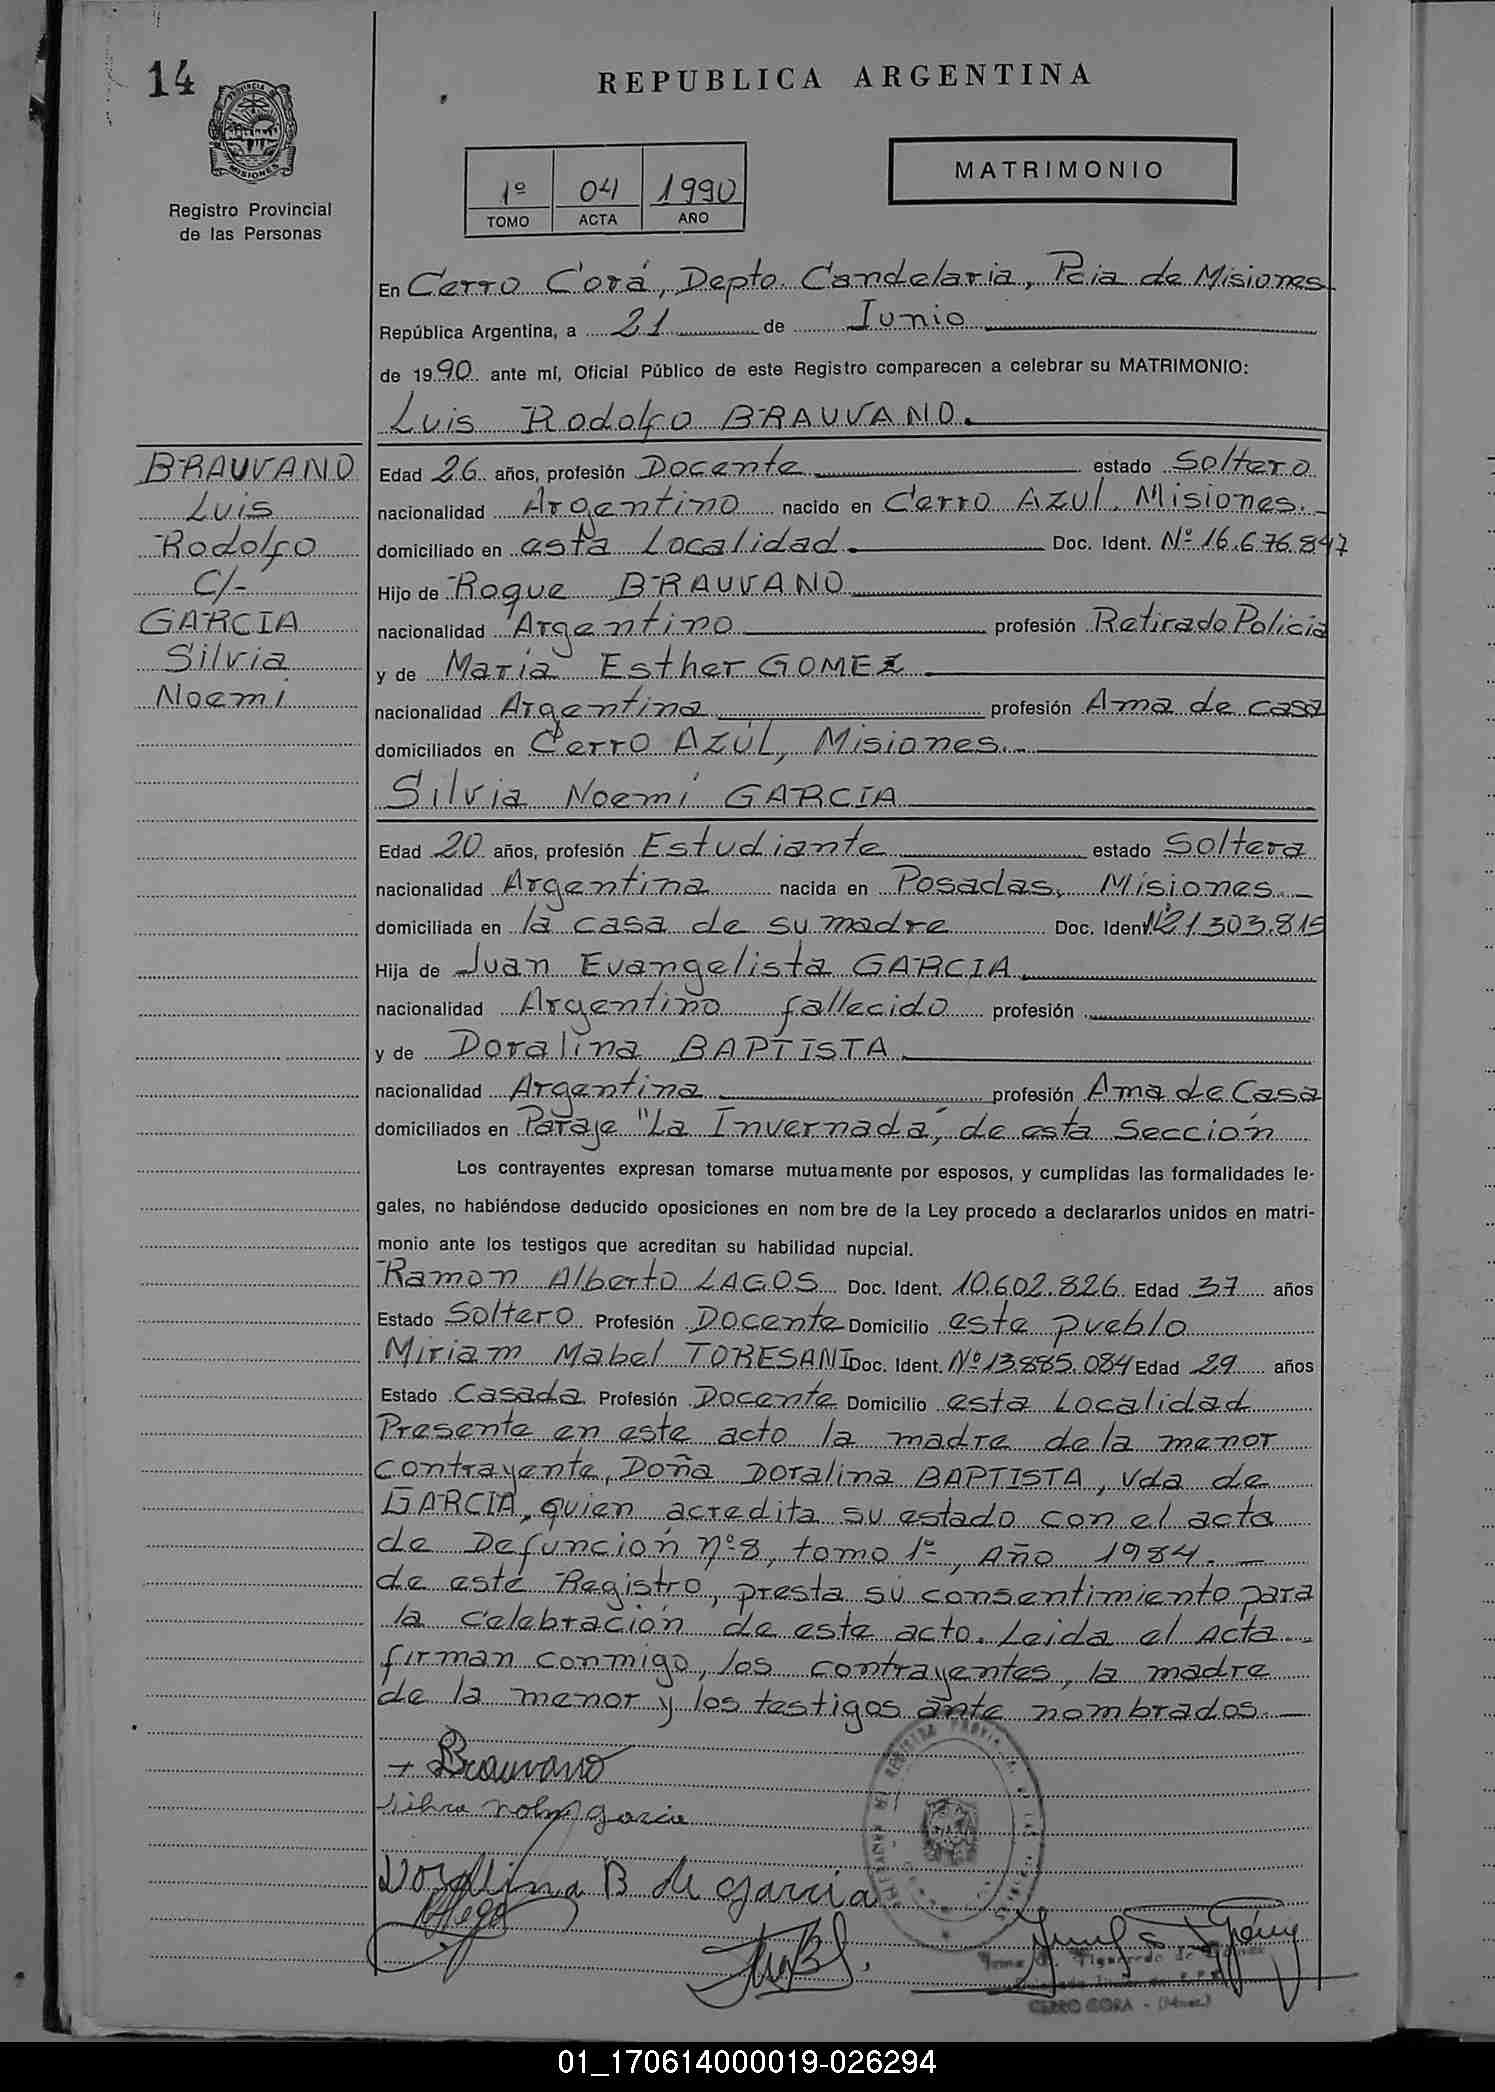 14
REPUBLICA ARGENTINA
PROVINCIA DE
MISIONES
MATRIMONIO
1º 04 1990
TOMO ACTA AÑO
Registro Provincial
de las Personas
En Cerro Corá, Depto. Candelaria, Pcia de Misiones
República Argentina, a 21 de Junio
de 1990 ante mí, Oficial Público de este Registro comparecen a celebrar su MATRIMONIO:
Luis Rodolfo BRAUVANO.
BRAUVANO
Luis
Rodolfo
C/-
GARCIA
Silvia
Noemi
Edad 26 años, profesión Docente estado Soltero
nacionalidad Argentino nacido en Cerro Azul, Misiones.-
domiciliado en esta Localidad. Doc. Ident. Nº 16.676.847
Hijo de Roque BRAUVANO
nacionalidad Argentino profesión Retirado Policia
y de María Esther GOMEZ
nacionalidad Argentina profesión Ama de casa
domiciliados en Cerro Azúl, Misiones.-
Silvia Noemí GARCIA
Edad 20 años, profesión Estudiante estado Soltera
nacionalidad Argentina nacida en Posadas, Misiones.-
domiciliada en la casa de su madre Doc. Ident Nº21.303.815
Hija de Juan Evangelista GARCIA.
nacionalidad Argentino fallecido profesión
y de Doralina BAPTISTA.
nacionalidad Argentina profesión Ama de Casa
domiciliados en Paraje "La Invernada", de esta Sección
Los contrayentes expresan tomarse mutuamente por esposos, y cumplidas las formalidades le-
gales, no habiéndose deducido oposiciones en nom bre de la Ley procedo a declararlos unidos en matri-
monio ante los testigos que acreditan su habilidad nupcial.
Ramon Alberto LAGOS Doc. Ident. 10.602.826 Edad 37 años
Estado Soltero Profesión Docente Domicilio este pueblo
Miriam Mabel TORESANI Doc. Ident. Nº13.885.084 Edad 29 años
Estado Casada Profesión Docente Domicilio esta Localidad
Presente en este acto la madre de la menor
contrayente, Doña Doralina BAPTISTA, Vda de
GARCIA, quien acredita su estado con el acta
de Defunción nº8, tomo 1º, Año 1984.-
de este Registro, presta su consentimiento para
la celebración de este acto. Leida el Acta
firman conmigo, los contrayentes, la madre
de la menor y los testigos ante nombrados.-
Brauvano
Silvia Noemi garcia
Doralina B de garcia
CERRO CORA - (Mnes.)
01_170614000019-026294